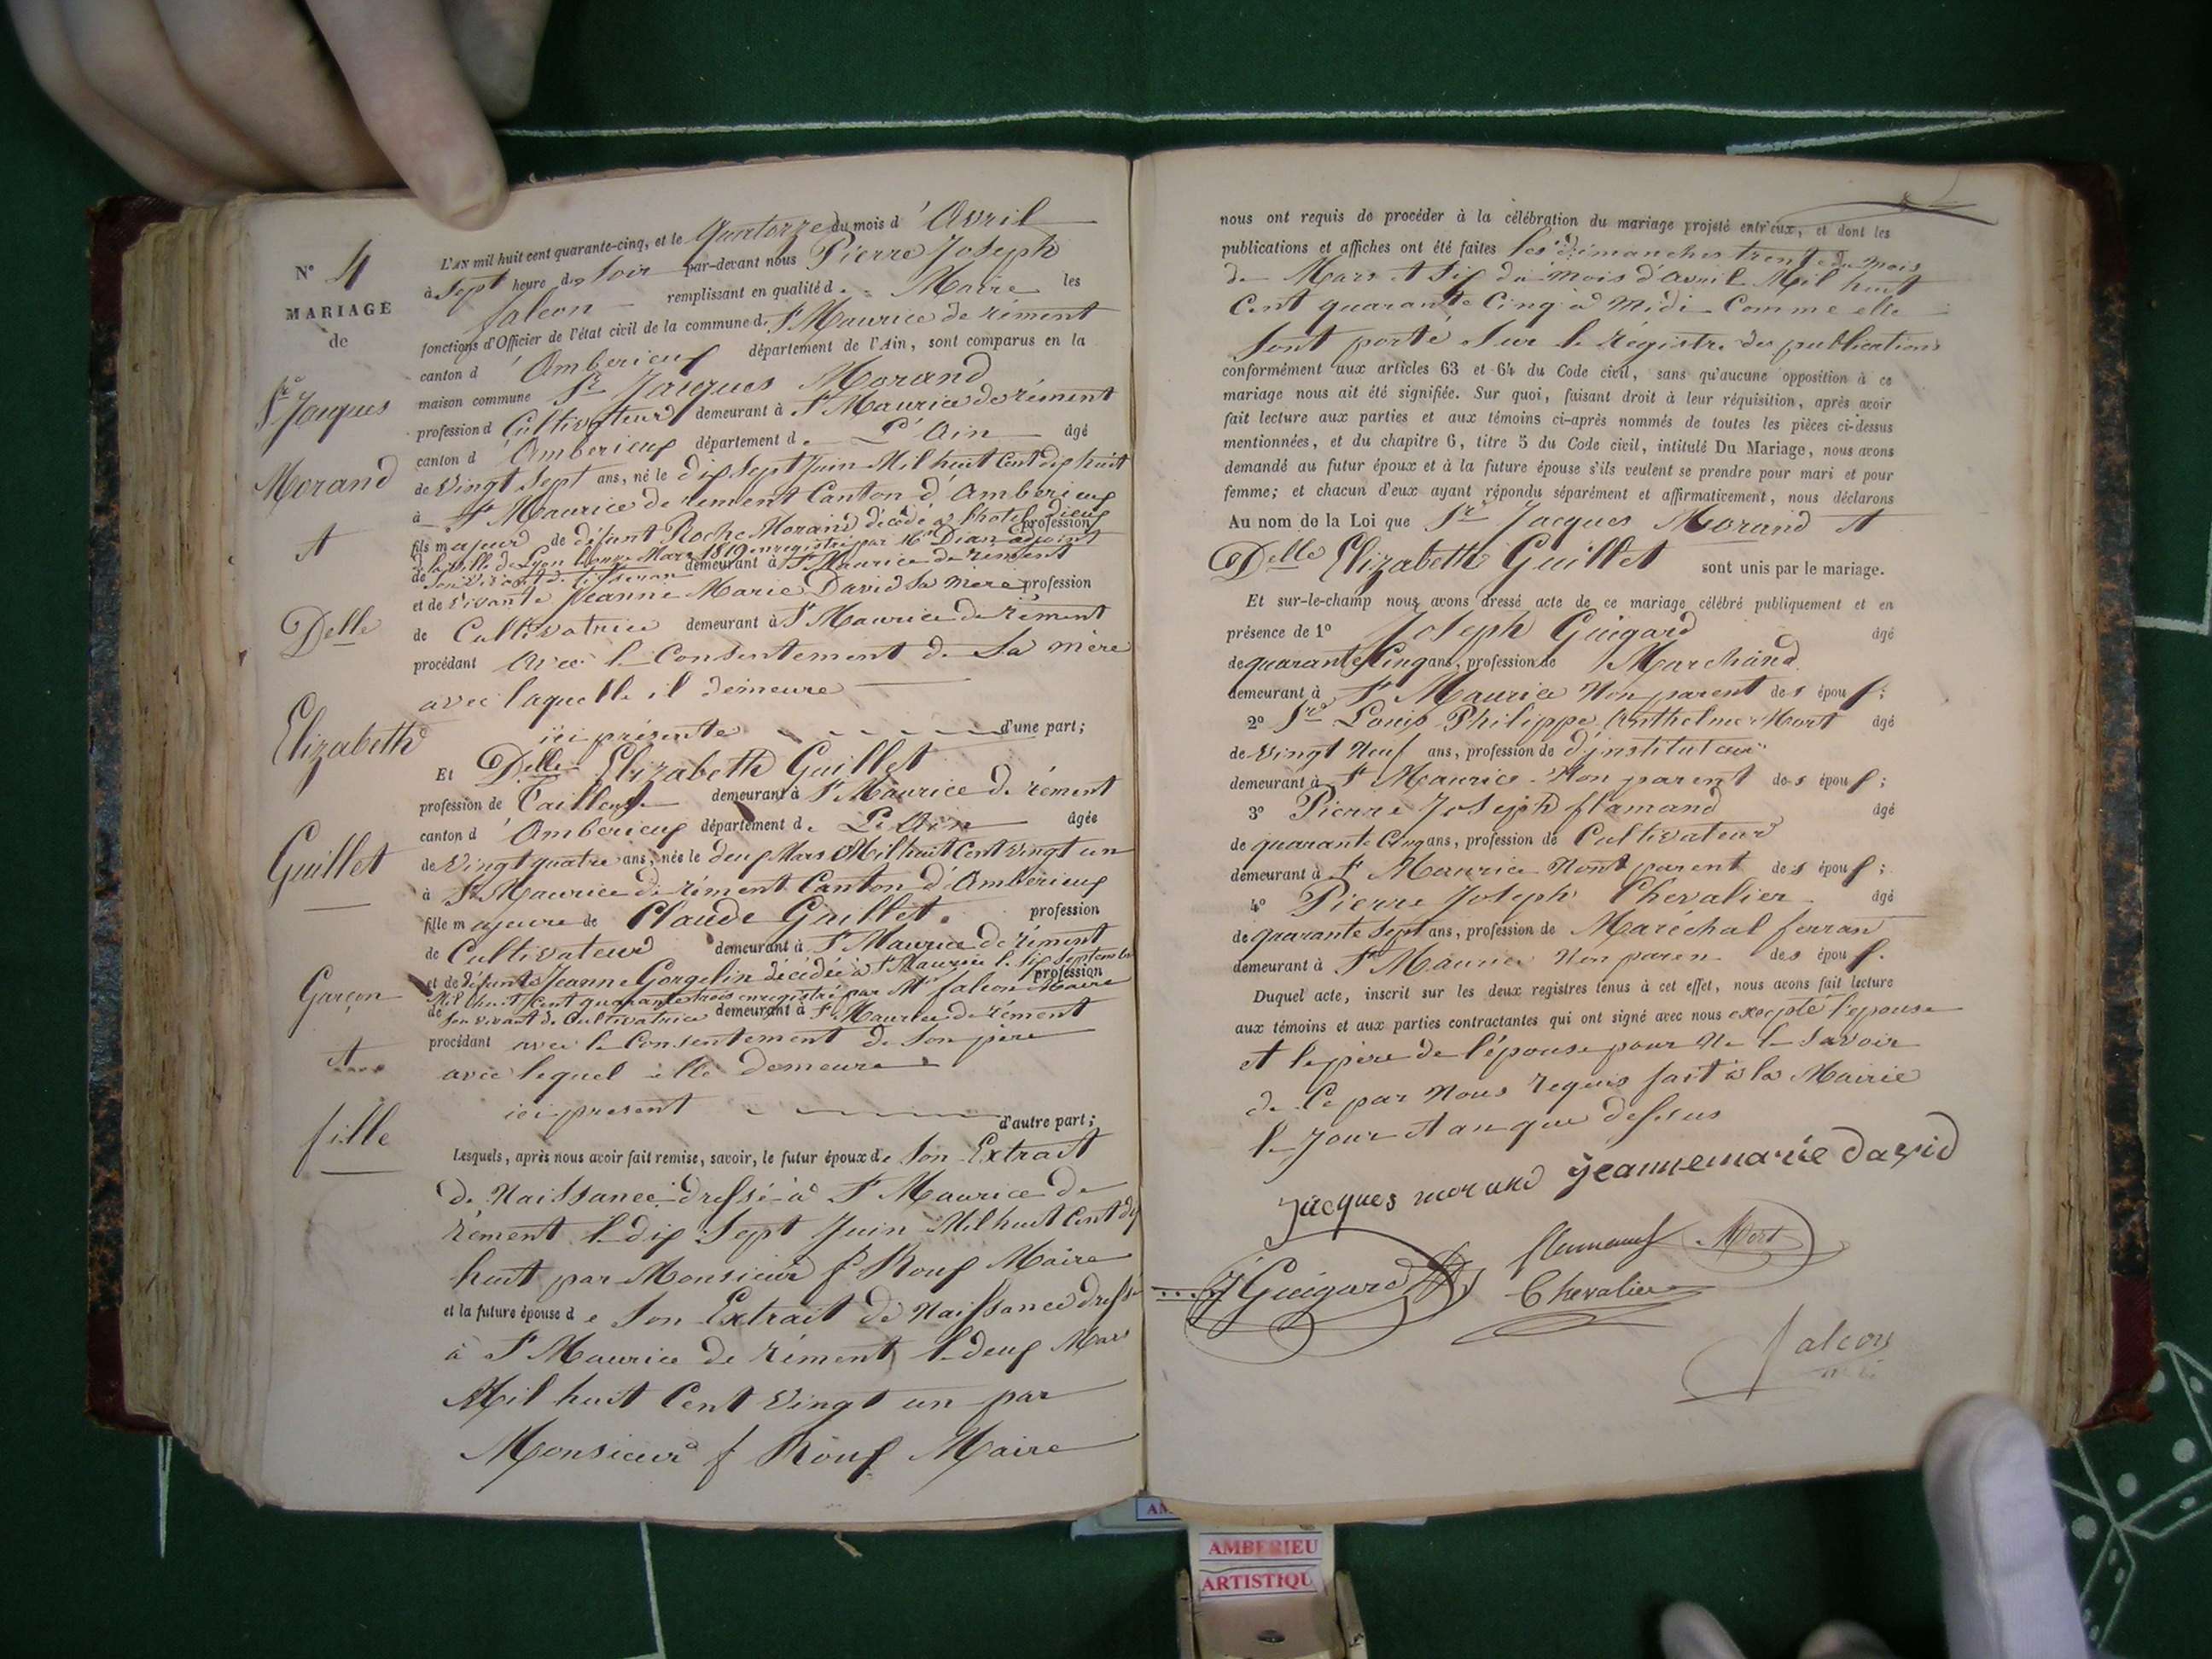 N° 4
MARIAGE
de
Sr Jacques
Morand
et
Delle
Elizabeth
Guillet
Garçon
et
fille
L'AN mil huit cent quarante-cinq, et le quatorze du mois d'Avril
à Sept heure du Soir par-devant nous Pierre Joseph
falcon remplissant en qualité de Maire les
fonctions d'Officier de l'état civil de la commune de St Maurice de rément
canton d'Amberieux département de l'Ain, sont comparus en la
maison commune Sr Jacques Morand
profession d Cultivateur demeurant à St Maurice de rément
canton d'Amberieux département de L'Ain âgé
de Vingt Sept ans, né le dix Sept Juin Mil huit Cent dix huit
à St Maurice de rément Canton d'Amberieux
fils majeur de défunt Roche Morand décédé à l'hotel dieux profession
de la ville de Lyon le onze Mars 1819 enregistré par Mr Dian adjoint
de Son vivant de tisseran demeurant à St Maurice de rément
et de vivante Jeanne Marie David Sa mère profession
de Cultivatrice demeurant à St Maurice de rément
procédant avec le Consentement de Sa mère
avec laquelle il demeure
ici présente d'une part;
Et Delle Elizabeth Guillet
profession de Tailleuse demeurant à St Maurice de rément
canton d'Amberieux département de L'Ain âgée
de Vingt quatre ans, née le deux Mars Mil huit Cent vingt un
à St Maurice de rément Canton d'Amberieux
fille majeure de Claude Guillet. profession
de Cultivateur demeurant à St Maurice de rément
et de défunte Jeanne Gorgelin décédée à St Maurice le Six Septembre profession
Mil huit Cent quarante trois enregistré par Mr falcon Maire
de Son vivant de Cultivatrice demeurant à St Maurice de rément
procédant avec le Consentement de Son père
avec lequel elle demeure
ici présent d'autre part;
Lesquels, après nous avoir fait remise, savoir, le futur époux de Son Extrait
de Naissance dressé à St Maurice de
rément le dix Sept Juin Mil huit Cent dix
huit par Monsieur f Roux Maire
et la future épouse de Son Extrait de Naissance dressé
à St Maurice de rément le deux Mars
Mil huit Cent Vingt un par
Monsieur f Roux Maire
nous ont requis de procéder à la célébration du mariage projeté entr'eux, et dont les
publications et affiches ont été faites les dimanches trente du mois
de Mars et Six du mois d'avril Mil huit
Cent quarante Cinq à Midi Comme elle
Sont porté Sur le Régistre des publications
conformément aux articles 63 et 64 du Code civil, sans qu'aucune opposition à ce
mariage nous ait été signifiée. Sur quoi, faisant droit à leur réquisition, après avoir
fait lecture aux parties et aux témoins ci-après nommés de toutes les pièces ci-dessus
mentionnées, et du chapitre 6, titre 5 du Code civil, intitulé Du Mariage, nous avons
demandé au futur époux et à la future épouse s'ils veulent se prendre pour mari et pour
femme; et chacun d'eux ayant répondu séparément et affirmativement, nous déclarons
Au nom de la Loi que Sr Jacques Morand et
Delle Elizabeth Guillet sont unis par le mariage.
Et sur-le-champ nous avons dressé acte de ce mariage célébré publiquement et en
présence de 1° Joseph Guigard âgé
de quarante Cinq ans, profession de Marchand
demeurant à St Maurice Non parent des époux;
2° Sr Louis Philippe Anthelme Mort âgé
de Vingt Neuf ans, profession de d'instituteur
demeurant à St Maurice Non parent des époux;
3° Pierre Joseph flamand âgé
de quarante Cinq ans, profession de Cultivateur
demeurant à St Maurice Nont parent des époux;
4° Pierre Joseph Chevalier âgé
de quarante Sept ans, profession de Maréchal ferran
demeurant à St Maurice Non paren des époux.
Duquel acte, inscrit sur les deux registres tenus à cet effet, nous avons fait lecture
aux témoins et aux parties contractantes qui ont signé avec nous excepté l'épouse
et le père de l'épouse pour Ne le Savoir
de Ce par Nous requis fait à la Mairie
le Jour et an que dessus
jacques morand jeannemarie david
flamand Mort
J Guigard Chevalier
falcon
AM
AMBERIEU
ARTISTIQU